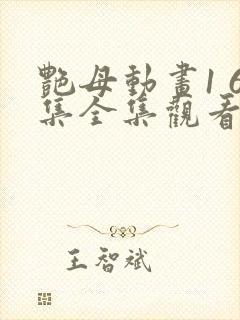 艷母動畫16
集全集觀看
王智斌